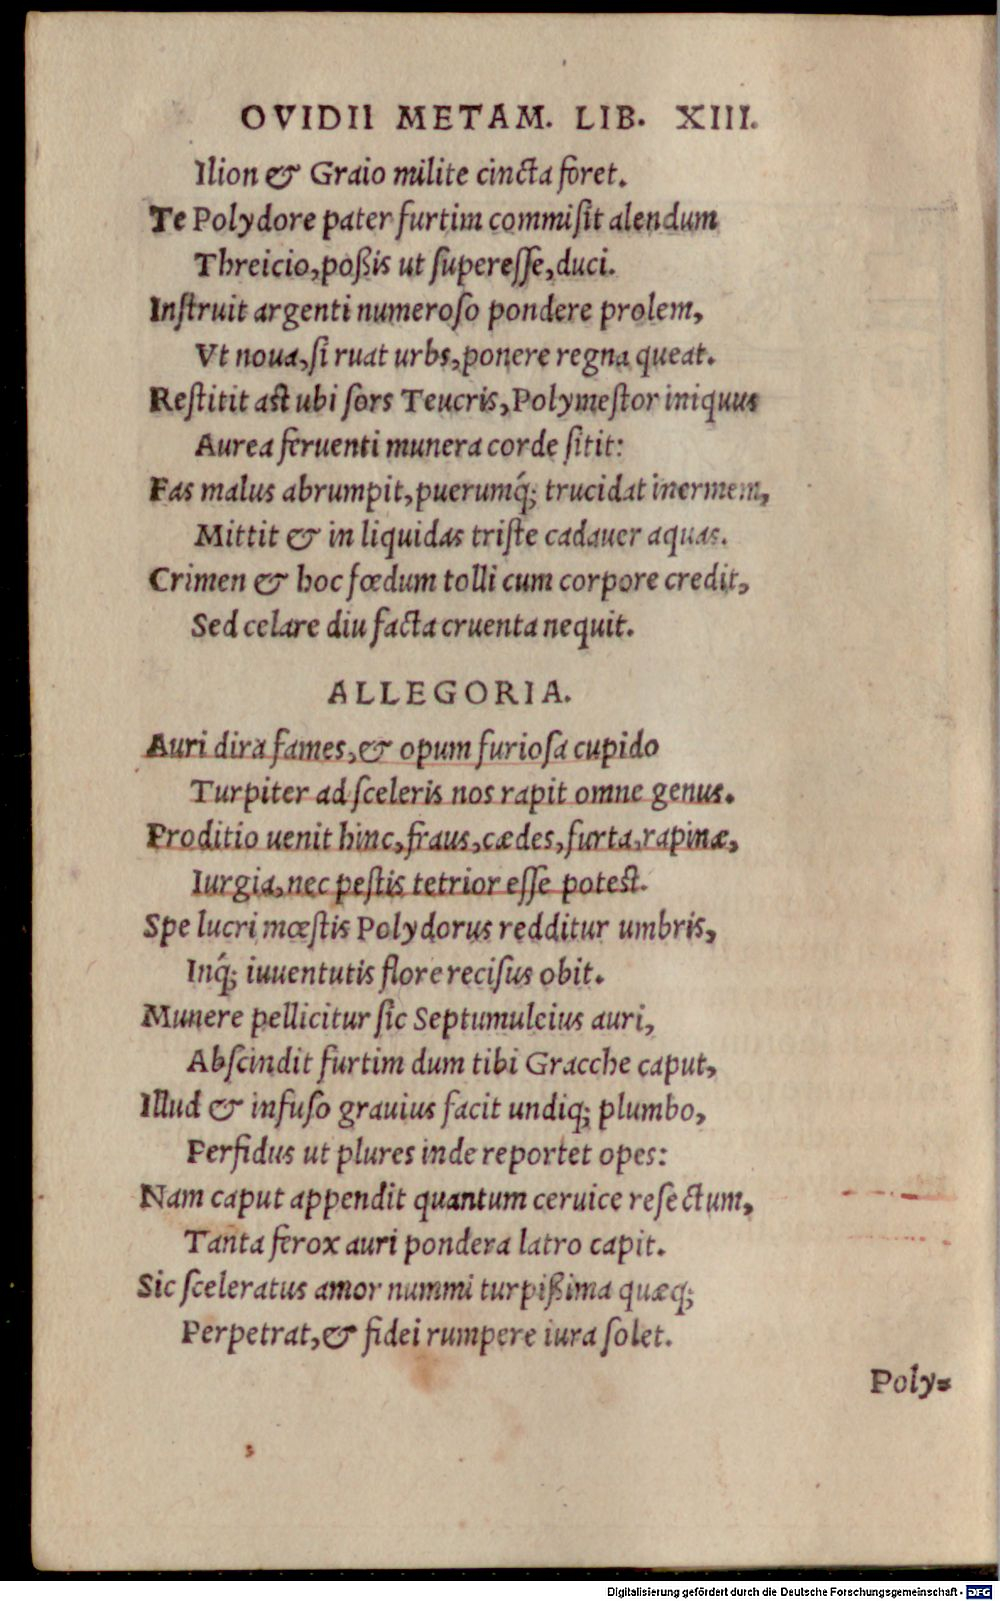 OVIDII METAM. LIB. XIII.
Ilion & Graio milite cincta foret.
Te Polydore pater furtim commiſit alendum
Threicio, poßis ut ſupereſſe, duci.
Inſtruit argenti numeroſo pondere prolem,
Vt noua, ſi ruat urbs, ponere regna queat.
Reſtitit aſt ubi ſors Teucris, Polymeſtor iniquus
Aurea feruenti munera corde ſitit:
Fas malus abrumpit, puerumq́; trucidat inermem,
Mittit & in liquidas triſte cadauer aquas.
Crimen & hoc fœdum tolli cum corpore credit,
Sed celare diu facta cruenta nequit.
ALLEGORIA.
Auri dira fames, & opum furioſa cupido
Turpiter ad ſceleris nos rapit omne genus.
Proditio uenit hinc, fraus, cædes, furta, rapinæ,
Iurgia, nec peſtis tetrior eſſe potest.
Spe lucri mœſtis Polydorus redditur umbris,
Inq́; iuuentutis flore reciſus obit.
Munere pellicitur ſic Septumuleius auri,
Abſcindit furtim dum tibi Gracche caput,
Illud & infuſo grauius facit undiq; plumbo,
Perfidus ut plures inde reportet opes:
Nam caput appendit quantum ceruice reſectum,
Tanta ferox auri pondera latro capit.
Sic ſceleratus amor nummi turpißima quæq;
Perpetrat, & fidei rumpere iura ſolet.
Poly=
Digitalisierung gefördert durch die Deutsche Forschungsgemeinschaft - DFG